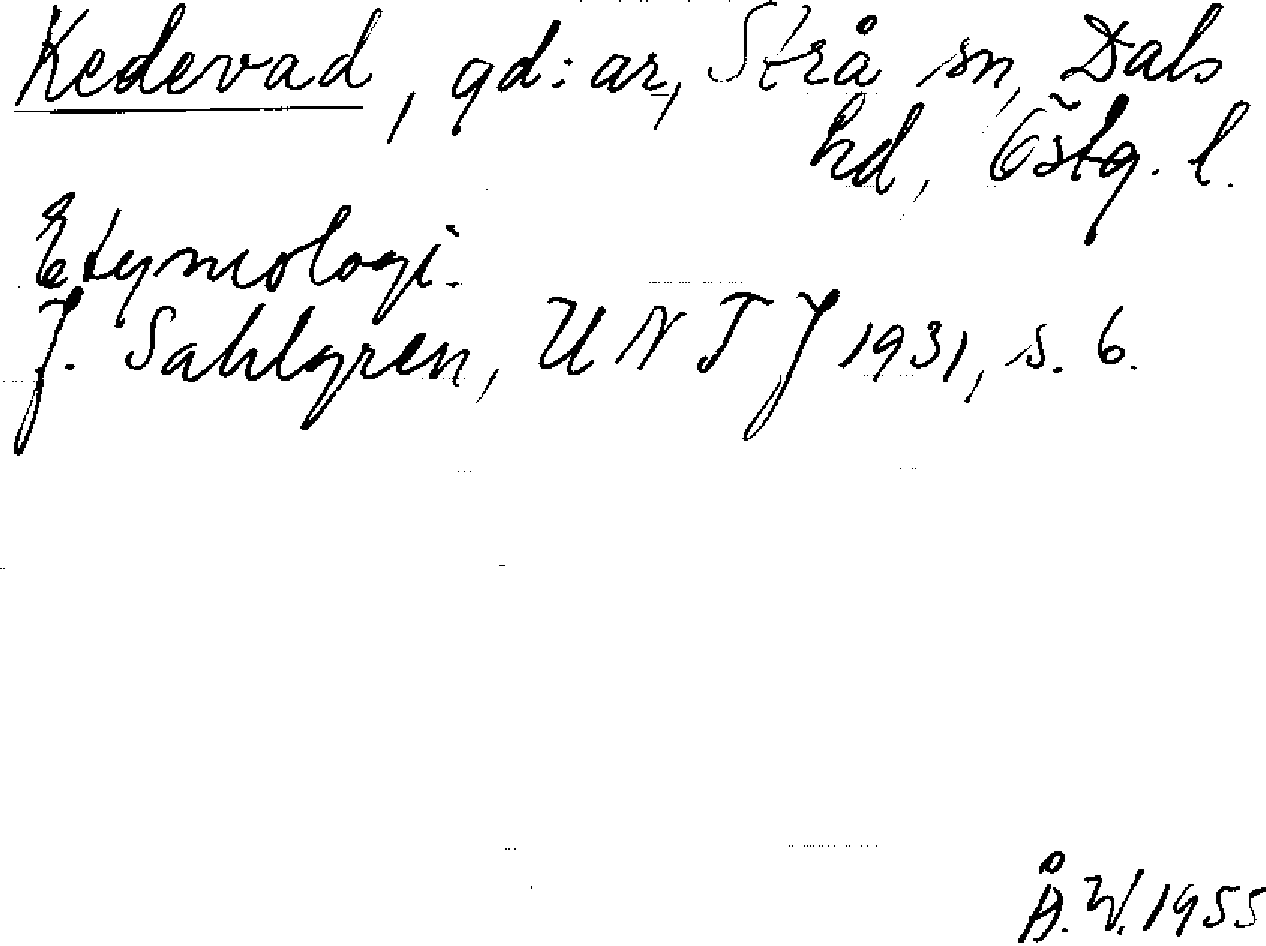 Kedevad, gd:ar, Strå sn, Dals
hd, Östg. l.
Etymologi.
J. Sahlgren, UNTJ 1931, s. 6.
Å.W. 1955